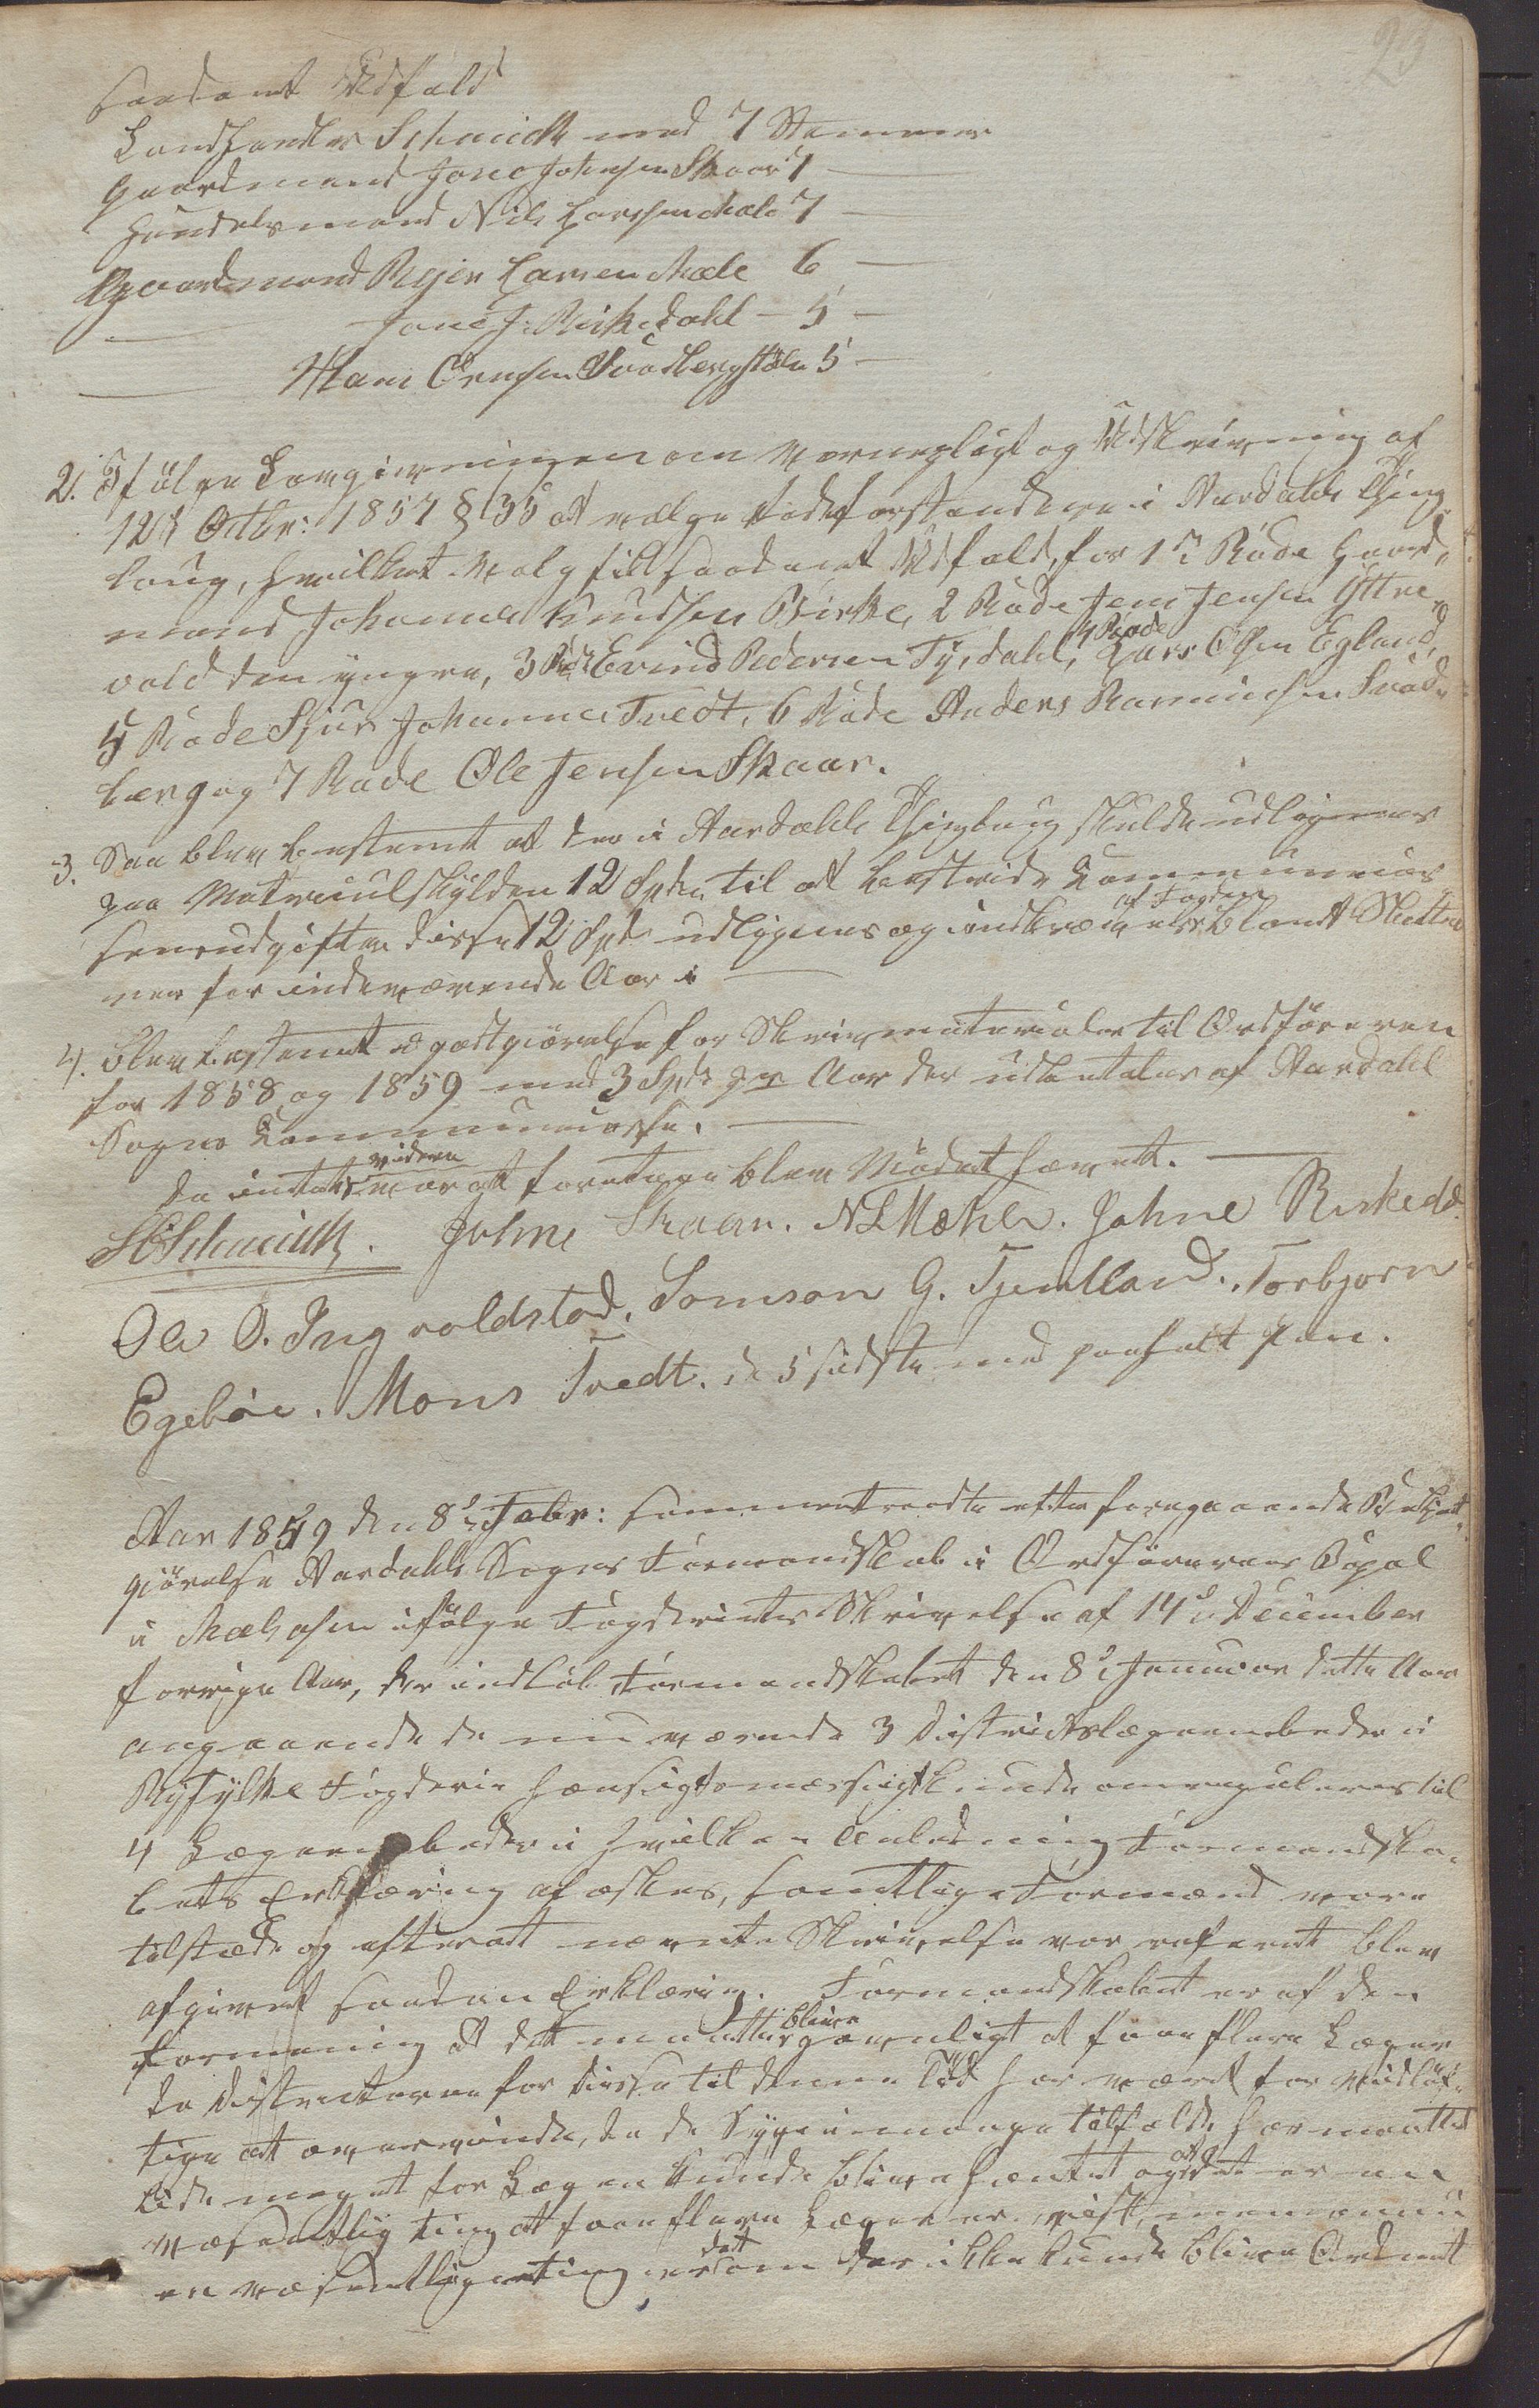 23
saadant Udfald
Landhandler Schmidt med 7 Stemmer
Gaardmand Jone Johnsen Skaar 7 —
Handelsmand Nils Larssen Mæle 7 —
Gaardmand Rejer Larsen Mæle 6 —
— Jone J. Riskedahl — 5 —
— Hans Ørensen Svadbergstøln 5 —
2. Ifølge Lovgivningen om Værnepligt og Udskrivning af
12te Octbr: 1857 § 35 at vælge Rodeforstandere i Aardahls Thing-
laug, hvilket Valg fik saadant Udfald, for 1ste Rode Gaard-
mand Johannes Knudsen Birke, 2 Rode Jens Jensen Yttre-
vold den yngre, 3 Rode Evind Pedersen Tysdahl, 4 Rode Lars Olsen Egland,
5 Rode Sjur Johannes Tvedt, 6 Rode Anders Rasmussen Svad-
berg og 7 Rode Ole Jensen Skaar.
3. Saa blev bestemt at der i Aardahls Thinglaug skulde udlignes
paa Matriculskylden 12 Spdr. til at bestride Kommunekas-
sens udgifter disse 12 Spd udlignes og indkræves af Fogden blandt Skatter-
ner for indeværende Aar i —
4. Blev bestemt Godtgjørelse for Skrivmaterialer til Ordføreren
for 1858 og 1859 med 3 Spd pr Aar der udbetales af Aardahl
Sogns Kommunekasse. —
Da intet videre var at foretage blev Mødet hævet. —
Schmidt. Johne Skaar. N L Mæhle. Johne Riskedal.
Ole O. Ingvoldstad. Somson G. Tjentland. Torbjørn
Egebøe. Mons Tvedt. de 5 sidste med paaholt Pen.
Aar 1859 den 8de Febr: sammentraadte efter foregaaende Bekjendt-
gjørelse Aardahls Sogns Formandskab i Ordførerens Bopæl
i Mælsosen ifølge Fogderiets Skrivelse af 14de December
forrige Aar, der indløb Formandskabet den 8de Januar dette Aar
angaaende de nuværende 3 Distriktslægeembeder i
Ryfylke Fogderie hensigtsmæssigt kunde omreguleres til
4 Lægeembeder i hvilken Anledning Formandska-
bets Erklæring afæskes, samtlige Formænd vare
tilstæde og efterat nævnte Skrivelse var referert blev
afgivet saadan Erklæring. Formandskabet er af den
Formening at det maatte blive gavnligt at faae flere Læger
da Distrikterne for disse til denne Tid har været for vidløf-
tige at overvinde, da de Syge i mange tilfælde har maattet
lide meget før Lægen kunde blive hentet og at det er en
væsentlig ting at faae flere Læger er vist, men ennu
en væsentligere ting er det om der ikke kunde blive Ordnet